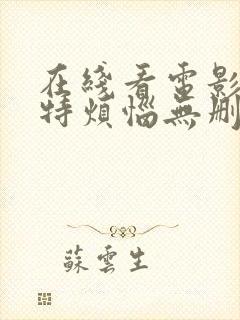 在綫看電影
特煩惱無刪
蘇雲生